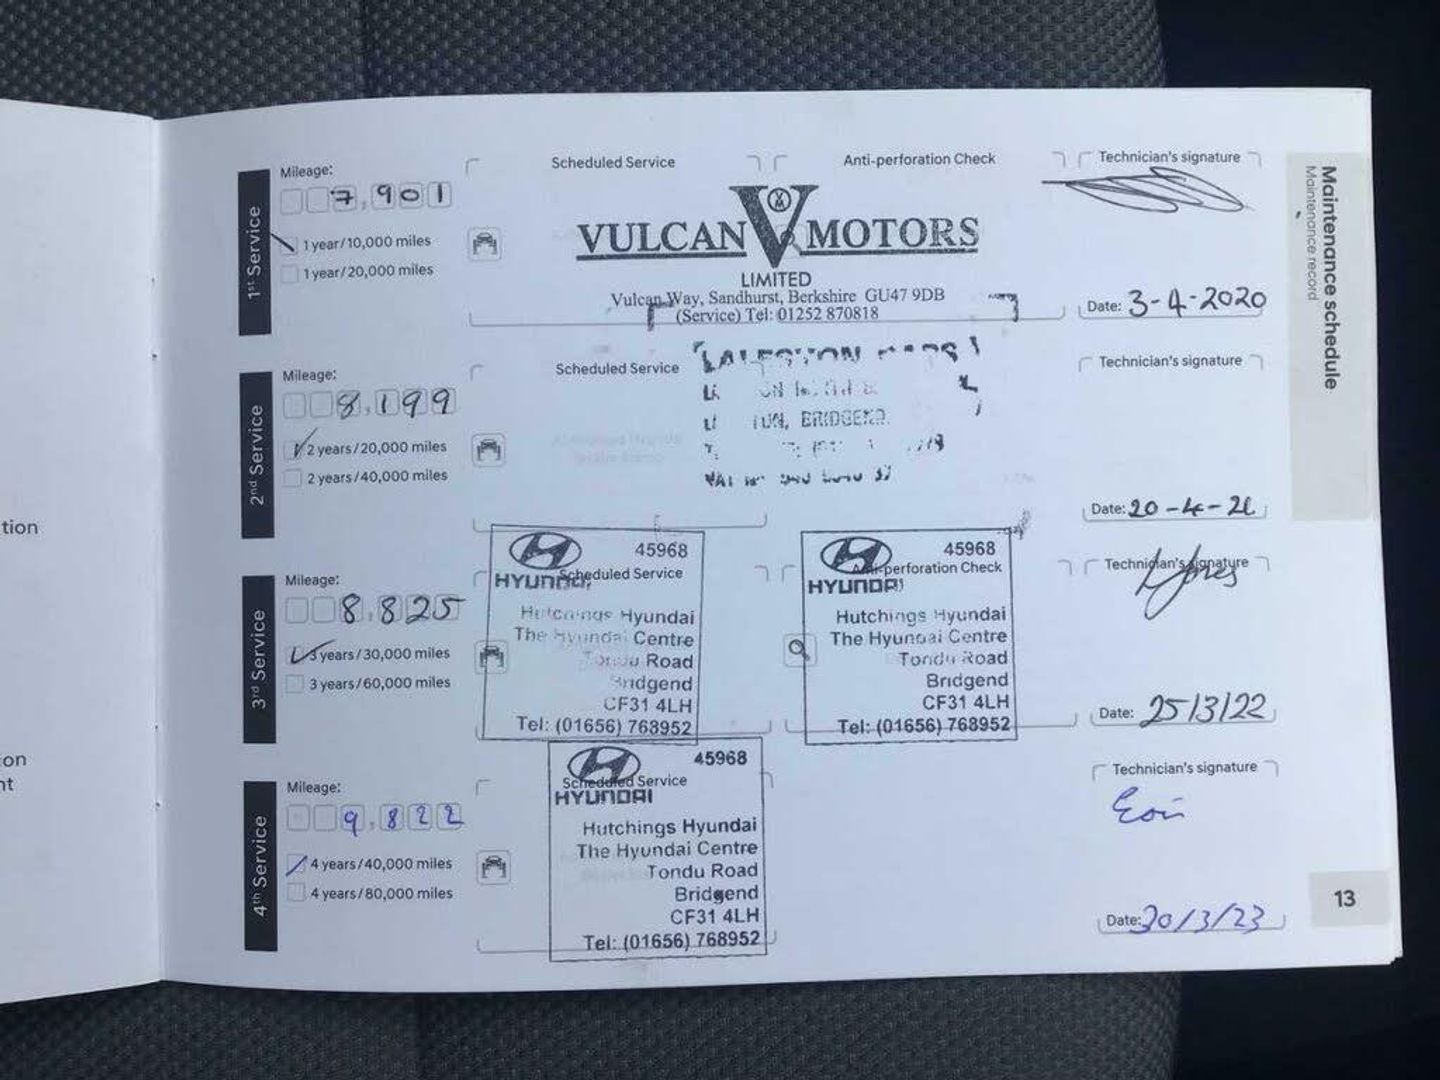 Maintenance schedule
Maintenance record
1st Service
Mileage:
7,901
1 year/10,000 miles
1 year/20,000 miles
Scheduled Service
Anti-perforation Check
VULCAN MOTORS
LIMITED
Vulcan Way, Sandhurst, Berkshire GU47 9DB
(Service) Tel: 01252 870818
Technician's signature
Date: 3-4-2020
2nd Service
Mileage:
8,199
2 years/20,000 miles
2 years/40,000 miles
Scheduled Service
BRIDGEND
Technician's signature
Date: 20-4-21
3rd Service
Mileage:
8,825
3 years/30,000 miles
3 years/60,000 miles
Scheduled Service
45968
HYUNDAI
Hutchings Hyundai
The Hyundai Centre
Tondu Road
Bridgend
CF31 4LH
Tel: (01656) 768952
Anti-perforation Check
45968
HYUNDAI
Hutchings Hyundai
The Hyundai Centre
Tondu Road
Bridgend
CF31 4LH
Tel: (01656) 768952
Technician's signature
Date: 25/3/22
4th Service
Mileage:
9,822
4 years/40,000 miles
4 years/80,000 miles
Scheduled Service
45968
HYUNDAI
Hutchings Hyundai
The Hyundai Centre
Tondu Road
Bridgend
CF31 4LH
Tel: (01656) 768952
Technician's signature
Date: 30/3/23
13
tion